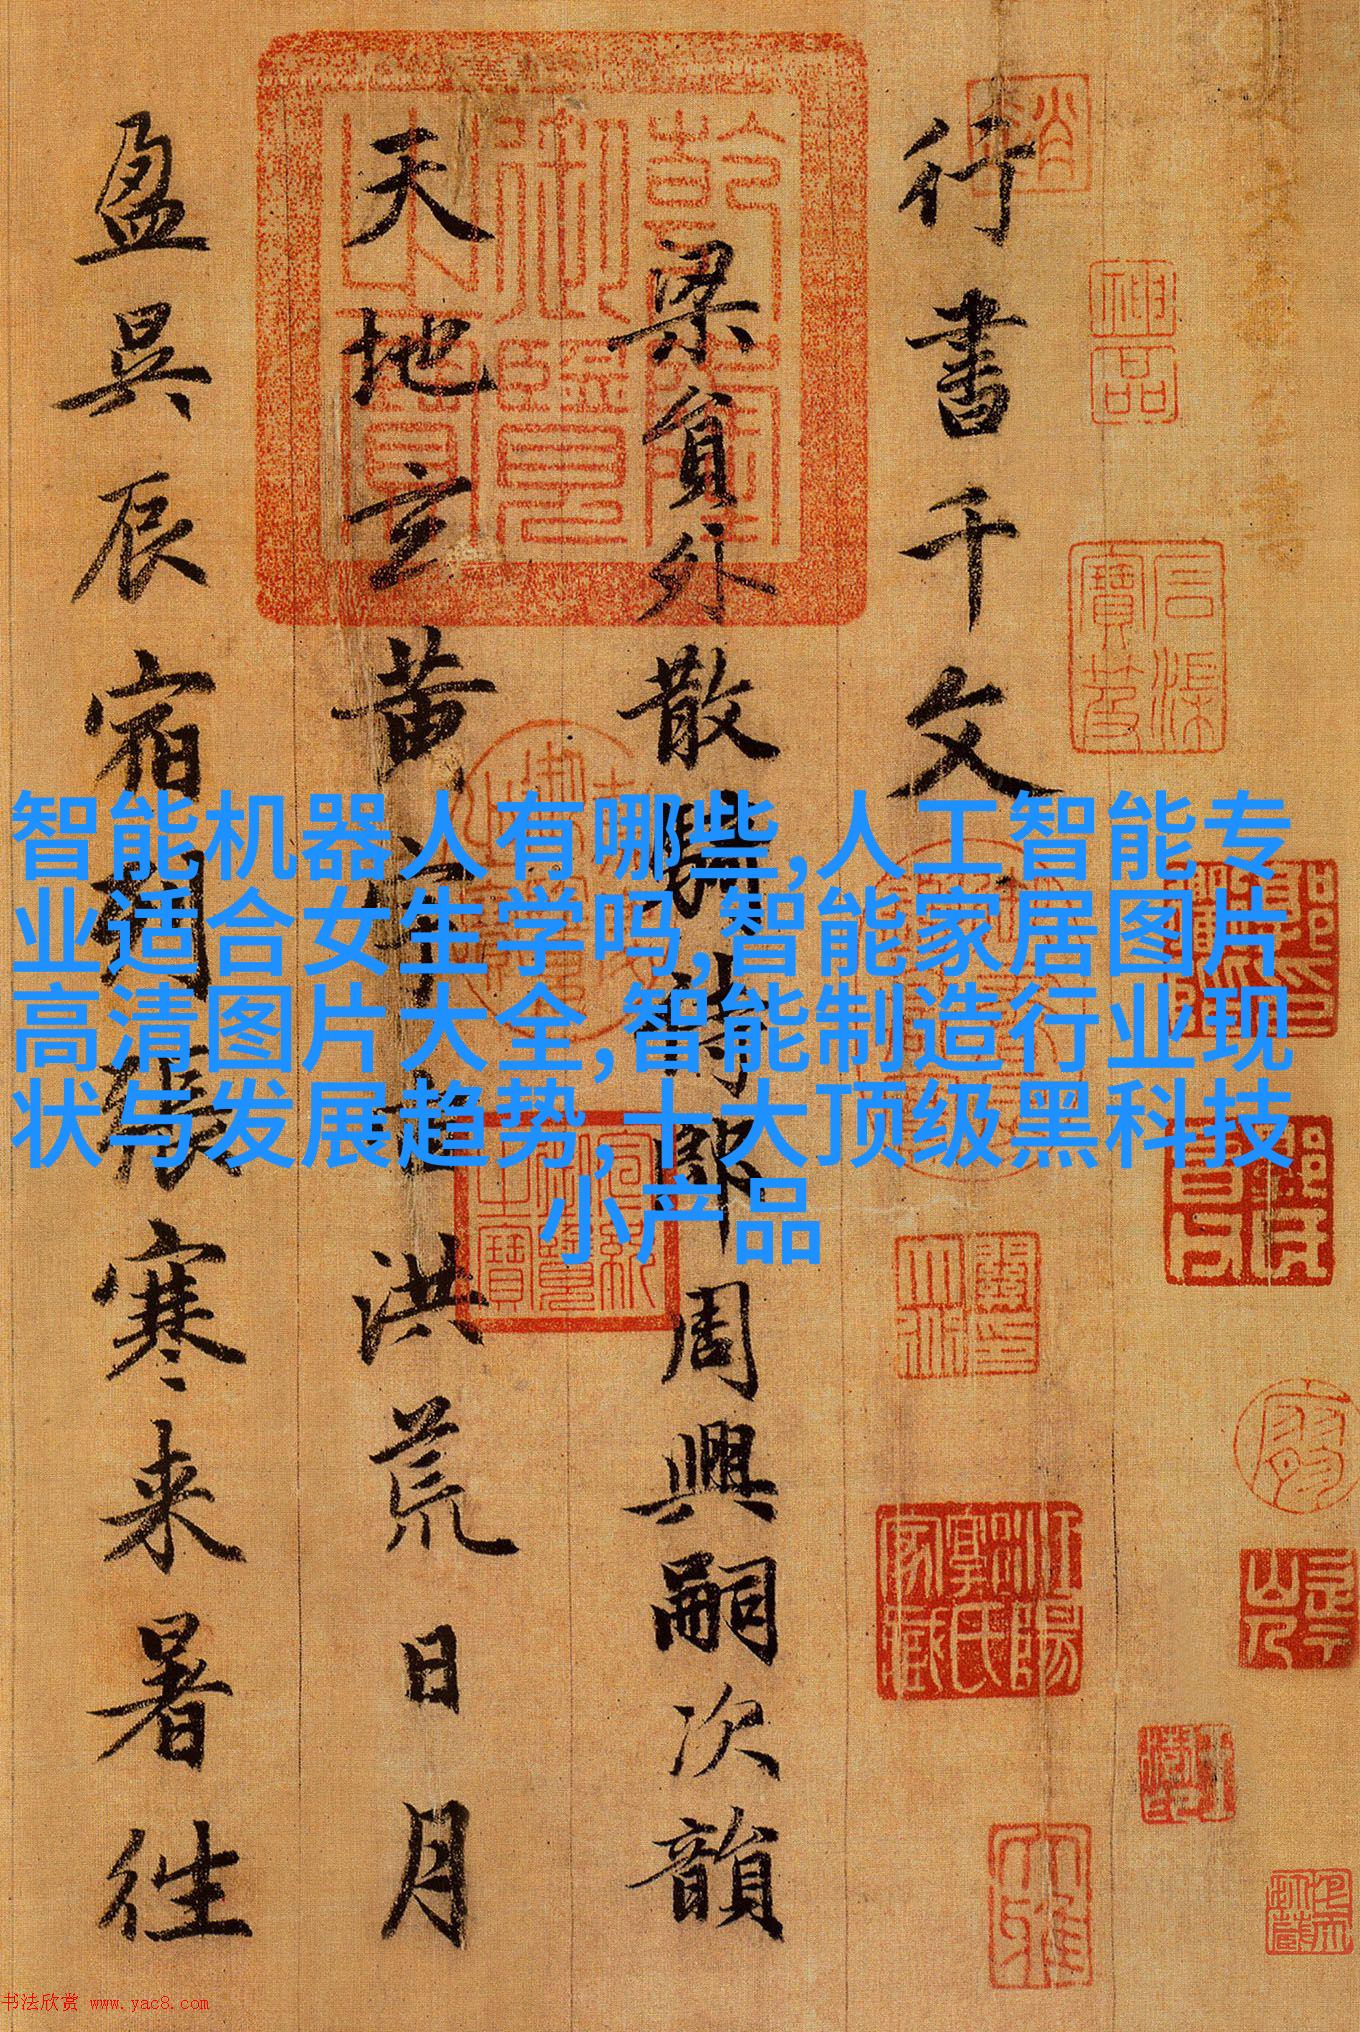 行書千文
梁貟外散騎侍郎周興嗣次韻
天地玄黄宇宙洪荒日月
盈昃辰宿列張寒来暑往
智能机器人有哪些,人工智能专
业适合女生学吗,智能家居图片
高清图片大全,智能制造行业现
状与发展趋势,十大顶级黑科技
小产品
乾隆御覽之寶
神品
石渠寶笈
宣統御覽之寶
书法欣赏 www.yac8.com